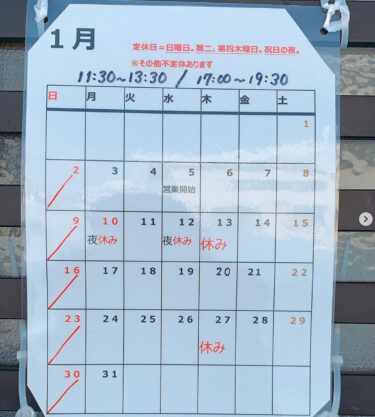 1月
定休日=日曜日。第二、第四木曜日。祝日の夜。
※その他不定休あります
11:30~13:30 / 17:00~19:30
日 月 火 水 木 金 土
1
2 3 4 5 6 7 8
営業開始
9 10 11 12 13 14 15
夜休み 夜休み 休み
16 17 18 19 20 21 22
23 24 25 26 27 28 29
休み
30 31